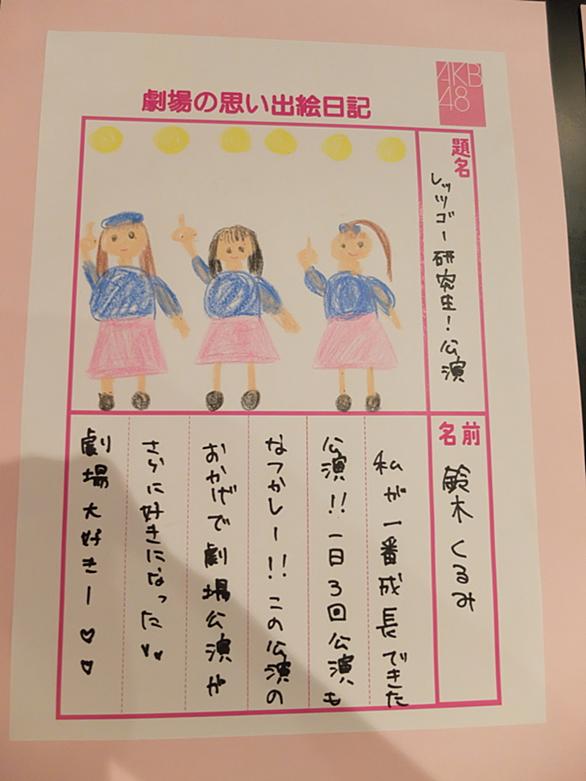 AKB
48
劇場の思い出絵日記
題名
レッツゴー研究生!公演
名前
鈴木くるみ
私が一番成長できた
公演!!一日3回公演も
なつかしー!!この公演の
おかげで劇場公演が
さらに好きになった♡♡
劇場大好きー♡♡